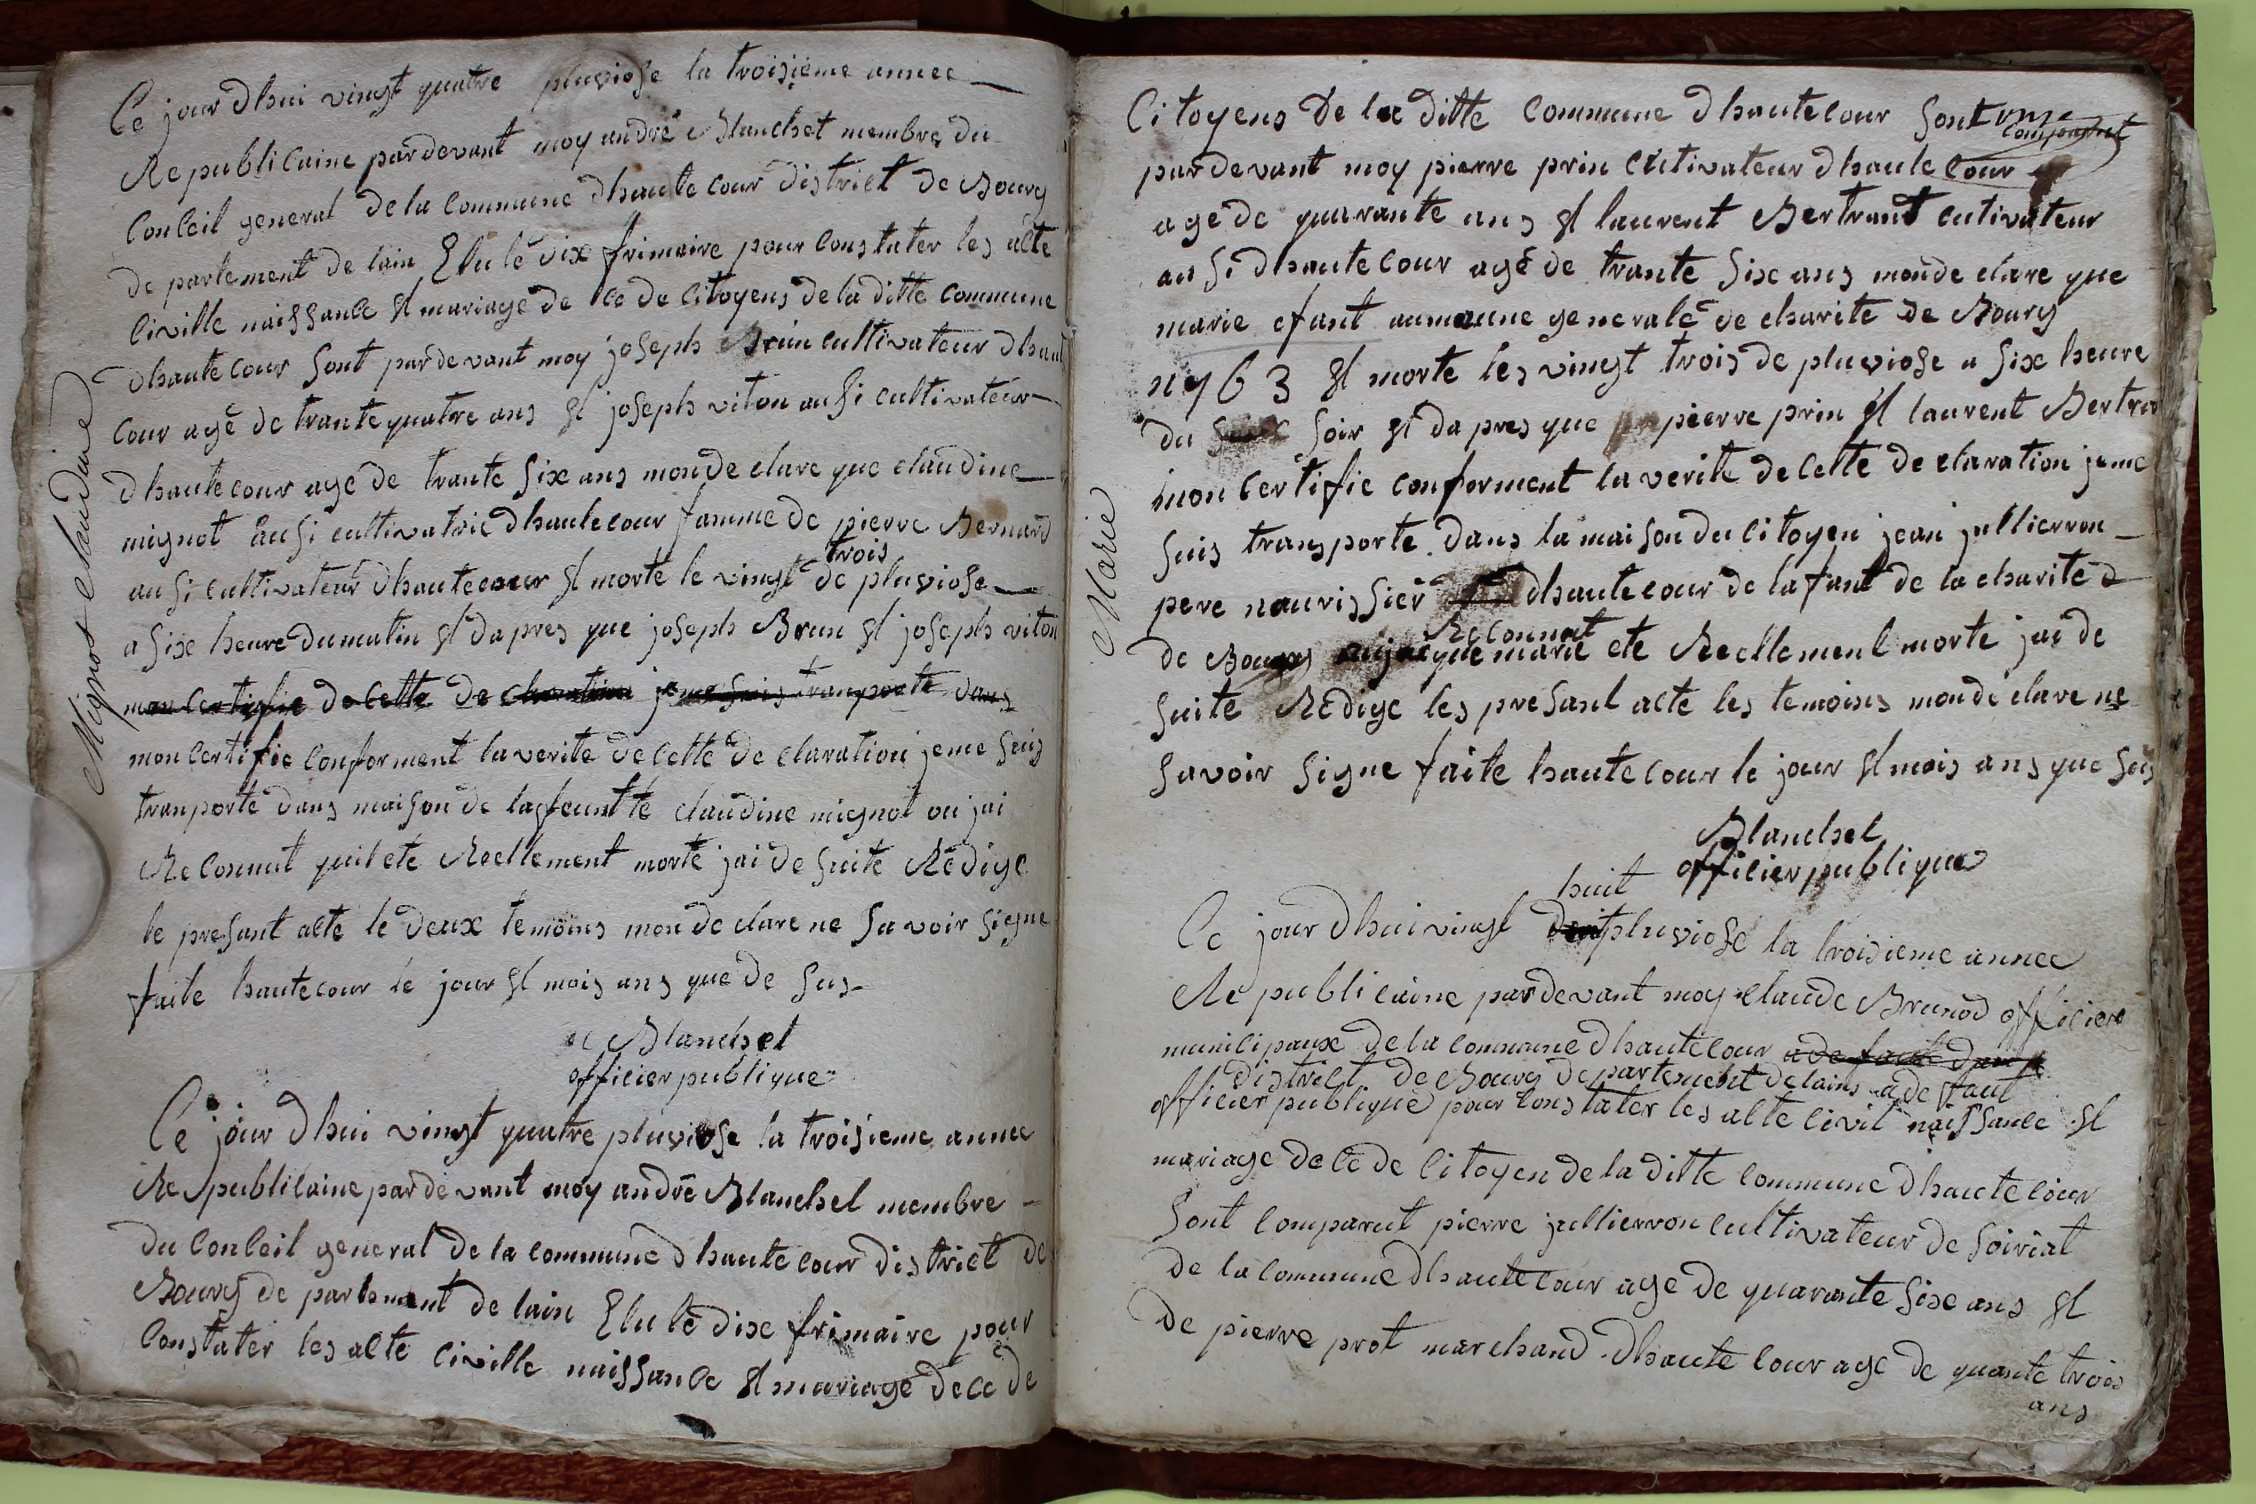 Ce jour dhui vingt quatre pluviose la troisieme annee
Republicaine pardevant moy andré Blanchet membre du
Conceil general de la Commune dhaute cour district de Bourg
de partement de lain Elu le dix frimaire pour Constater les acte
Civille naissance et mariage de ce de Citoyens de la ditte Commune
dhaute cour sont pardevant moy joseph Brun cultivateur dhaut
cour agé de trante quatre ans et joseph viton ausi cultivateur
dhaute cour agé de trante six ans mon de clare que claudine
mignot ausi cultivatric dhautecour famme de pierre Bernard
trois
ausi cultivateur dhautecour et morte le vingt de pluviose
a six heure du matin et da pres que joseph Brun et joseph viton
mon certifie de cette de claration je me suis tranporte dans
mon certifie conforment la verite de cette de claration je me suis
tranporte dans maison de la feunt te claudine mignot ou jai
Reconnut quil ete Reellement morte jai de suite Redige
le presant acte le deux temoins mon de clare ne savoir signe
faite hautecour le jour et mois ans que de sus
Blanchet
officier publique
Mignot claudine
Ce jour dhui vingt quatre pluviose la troisieme annee
Republicaine par de vant moy andré Blanchet membre
du Conceil general de la commune dhaute cour district de
Bourg de partemant de lain Elu le dix frimaire pour
Constater les acte civille naissance et mariage de ce de
Citoyens de la ditte Commune dhautecour sont
comparut
pardevant moy pierre prin cutivateur dhaute cour
age de quarante ans et laurent Bertrant cutivateur
au si dhaute cour agé de trante six ans mon de clare que
marie efant aumaune generale de charite de Bourg
n 763 et morte les vingt trois de pluviose a six heure
du soir et da pres que pierre prin et laurent Bertran
mon certifie conforment la verite de cette de claration je me
suis transporte dans la maison du citoyen jean jullierron
pere nourissier dhautecour de lafant de la charite d
Reconnut
de Bourg que marie ete Reellement morte jai de
suite Redige les presant acte les temoins mon de clare ne
savoir signe faite hautecour le jour et mois ans que sus
Blanchet
officier publique
Marie
huit
Ce jour dhui vingt pluviose la troisieme annee
Republicaine par devant moy claude Brunod officiere
municipaux de la commune dhautecour
district de Bourg departement de lains a de faut
officier publique pour Constater les acte civil naissance et
mariage de ce de Citoyen de la ditte commune dhaute cour
sont comparut pierre jullierron cultivateur de soiriat
de la commune dhaute cour age de quarante six ans et
de pierre prot marchand dhaute cour age de quante trois
ans